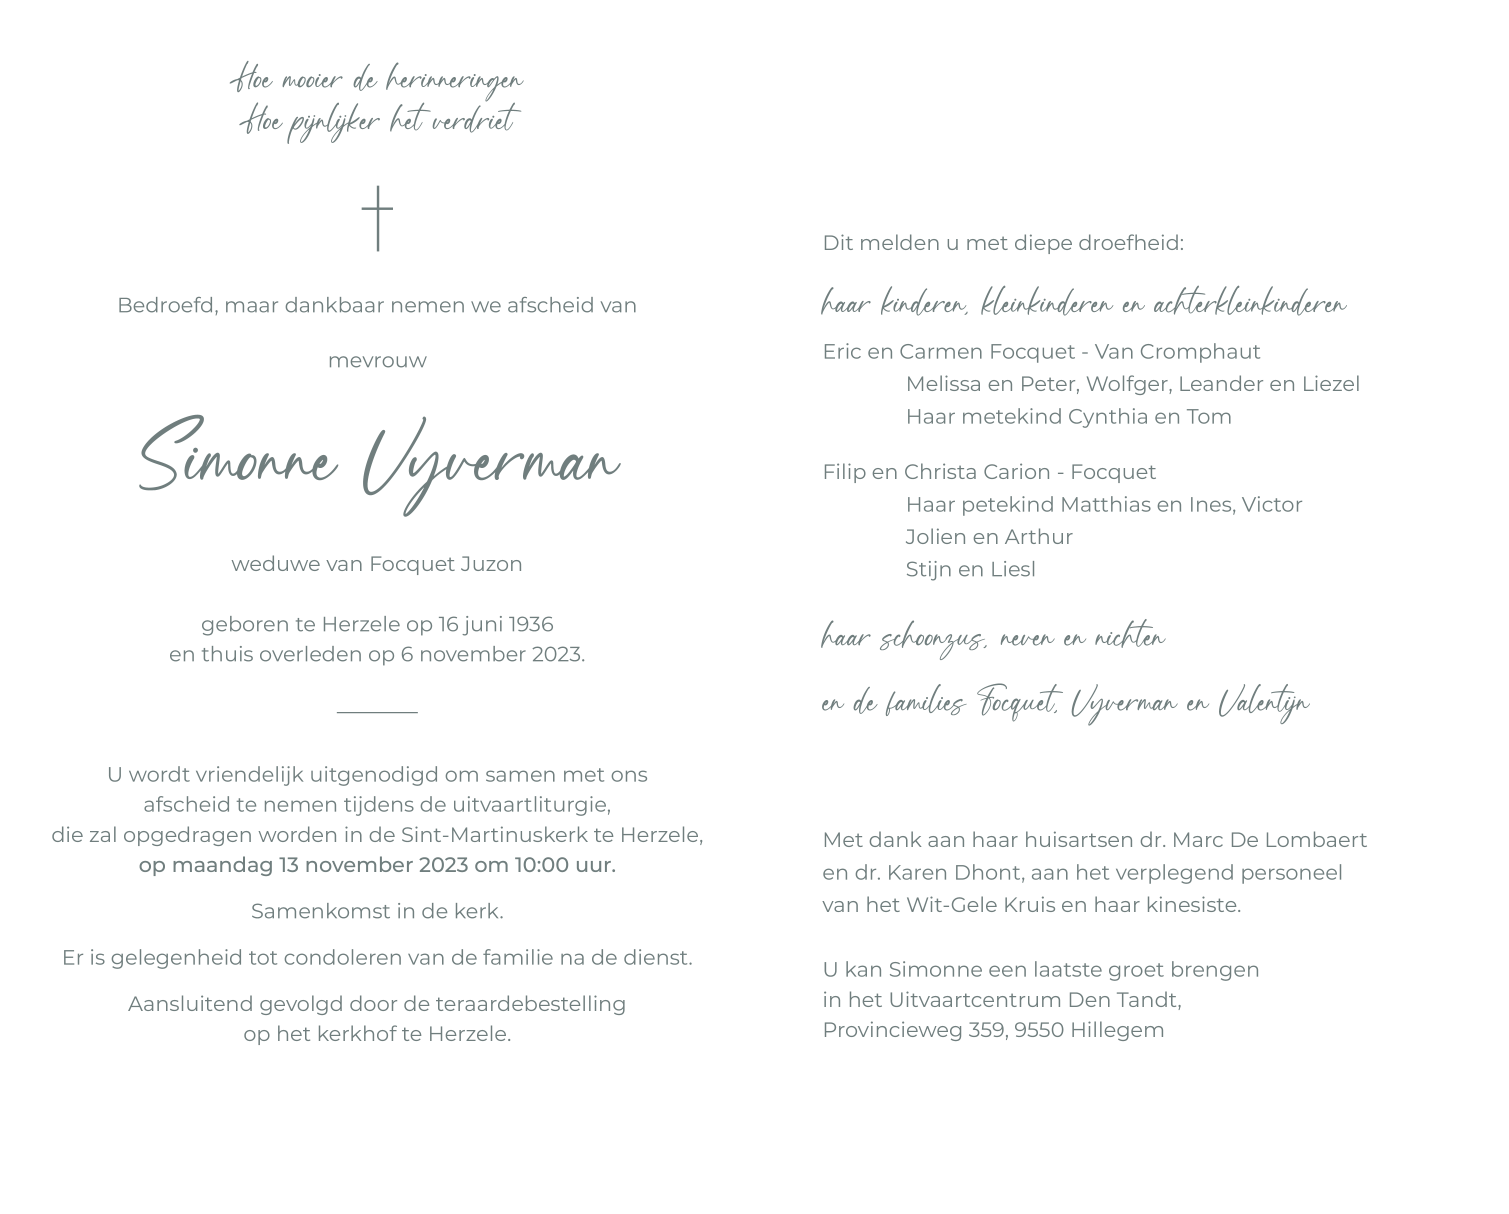 Hoe mooier de herinneringen
Hoe pijnlijker het verdriet
Bedroefd, maar dankbaar nemen we afscheid van
mevrouw
Simonne Vyverman
weduwe van Focquet Juzon
geboren te Herzele op 16 juni 1936
en thuis overleden op 6 november 2023.
U wordt vriendelijk uitgenodigd om samen met ons
afscheid te nemen tijdens de uitvaartliturgie,
die zal opgedragen worden in de Sint-Martinuskerk te Herzele,
op maandag 13 november 2023 om 10:00 uur.
Samenkomst in de kerk.
Er is gelegenheid tot condoleren van de familie na de dienst.
Aansluitend gevolgd door de teraardebestelling
op het kerkhof te Herzele.
Dit melden u met diepe droefheid:
haar kinderen, kleinkinderen en achterkleinkinderen
Eric en Carmen Focquet - Van Cromphaut
Melissa en Peter, Wolfger, Leander en Liezel
Haar metekind Cynthia en Tom
Filip en Christa Carion - Focquet
Haar petekind Matthias en Ines, Victor
Jolien en Arthur
Stijn en Liesl
haar schoonzus, neven en nichten
en de families Focquet, Vyverman en Valentijn
Met dank aan haar huisartsen dr. Marc De Lombaert
en dr. Karen Dhont, aan het verplegend personeel
van het Wit-Gele Kruis en haar kinesiste.
U kan Simonne een laatste groet brengen
in het Uitvaartcentrum Den Tandt,
Provincieweg 359, 9550 Hillegem